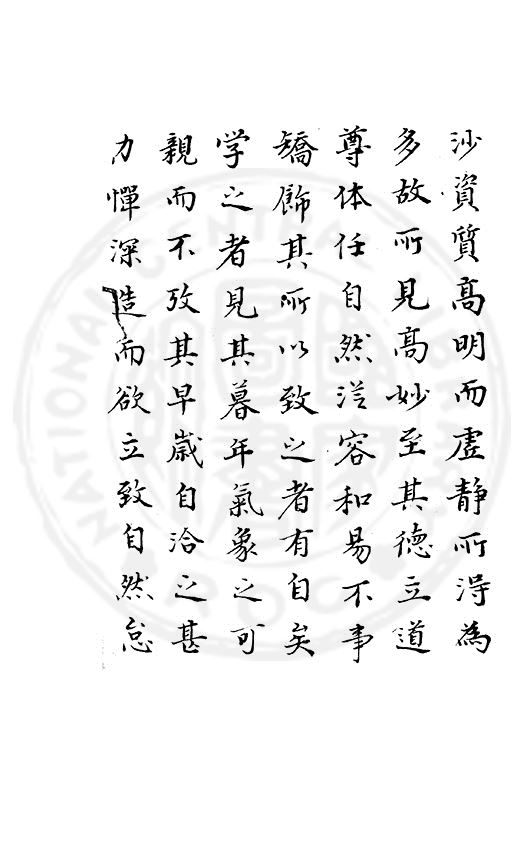 沙資質高明而虛靜所得為
多故所見高妙至其德立道
尊体任自然從容和易不事
矯飾其所以致之者有自矣
学之者見其暮年氣象之可
親而不攷其早歲自治之甚
力憚深造而欲立致自然怠
NATIONAL CENTRAL LIBRARY